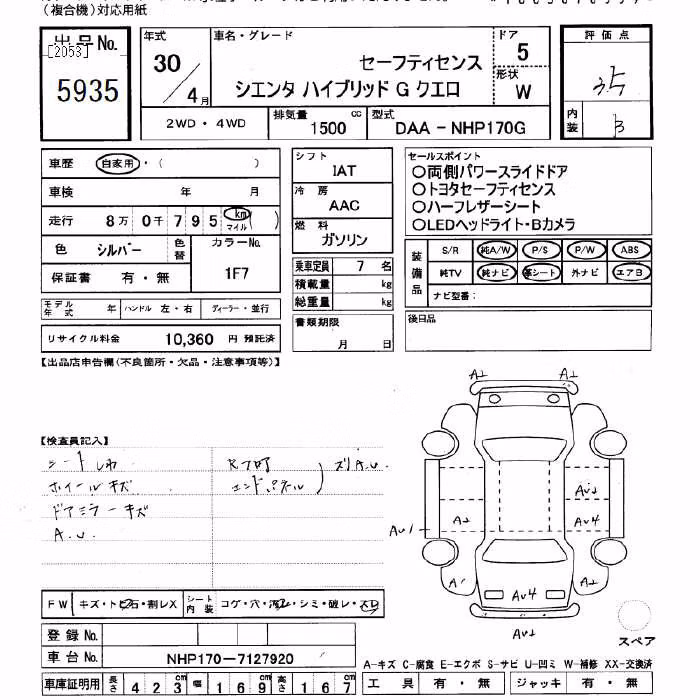 (複合機)対応用紙
出品No.
[2053]
5935
年式
30/4月
車名・グレード
セーフティセンス
シエンタ ハイブリッド G クエロ
ドア
5
形状
W
2WD・4WD
排気量
1500 cc
型式
DAA - NHP170G
評価点
3.5
内装
B
車歴 自家用・( )
車検 年 月
走行 8万 0千 7 9 5 km マイル ( )
色 シルバー 色替
カラーNo.
1F7
保証書 有・無
モデル年式 年 ハンドル 左・右 ディーラー・並行
リサイクル料金 10,360 円 預託済
シフト
IAT
冷房
AAC
燃料
ガソリン
乗車定員 7 名
積載量 kg
総重量 kg
書類期限
月 日
セールスポイント
○両側パワースライドドア
○トヨタセーフティセンス
○ハーフレザーシート
○LEDヘッドライト・Bカメラ
装備品
S/R 純A/W P/S P/W ABS
純TV 純ナビ 革シート 外ナビ エアB
ナビ型番:
後日品
【出品店申告欄(不良箇所・欠品・注意事項等)】
【検査員記入】
シートしわ
ホイールキズ
ドアミラーキズ
A.U.
エンドパネル
ズリA.U.
A1 A1
AU1 A2 AU2
AU4
A1 AU4 A2
AU2
スペア
FW キズ・トビ石・割レX シート内装 コゲ・穴・汚レ・シミ・破レ・スレ
登録No.
車台No. NHP170-7127920
車庫証明用 長さ 423cm 幅 169cm 高さ 167cm
A-キズ C-腐食 E-エクボ S-サビ U-凹ミ W-補修 XX-交換済
工具 有・無 ジャッキ 有・無